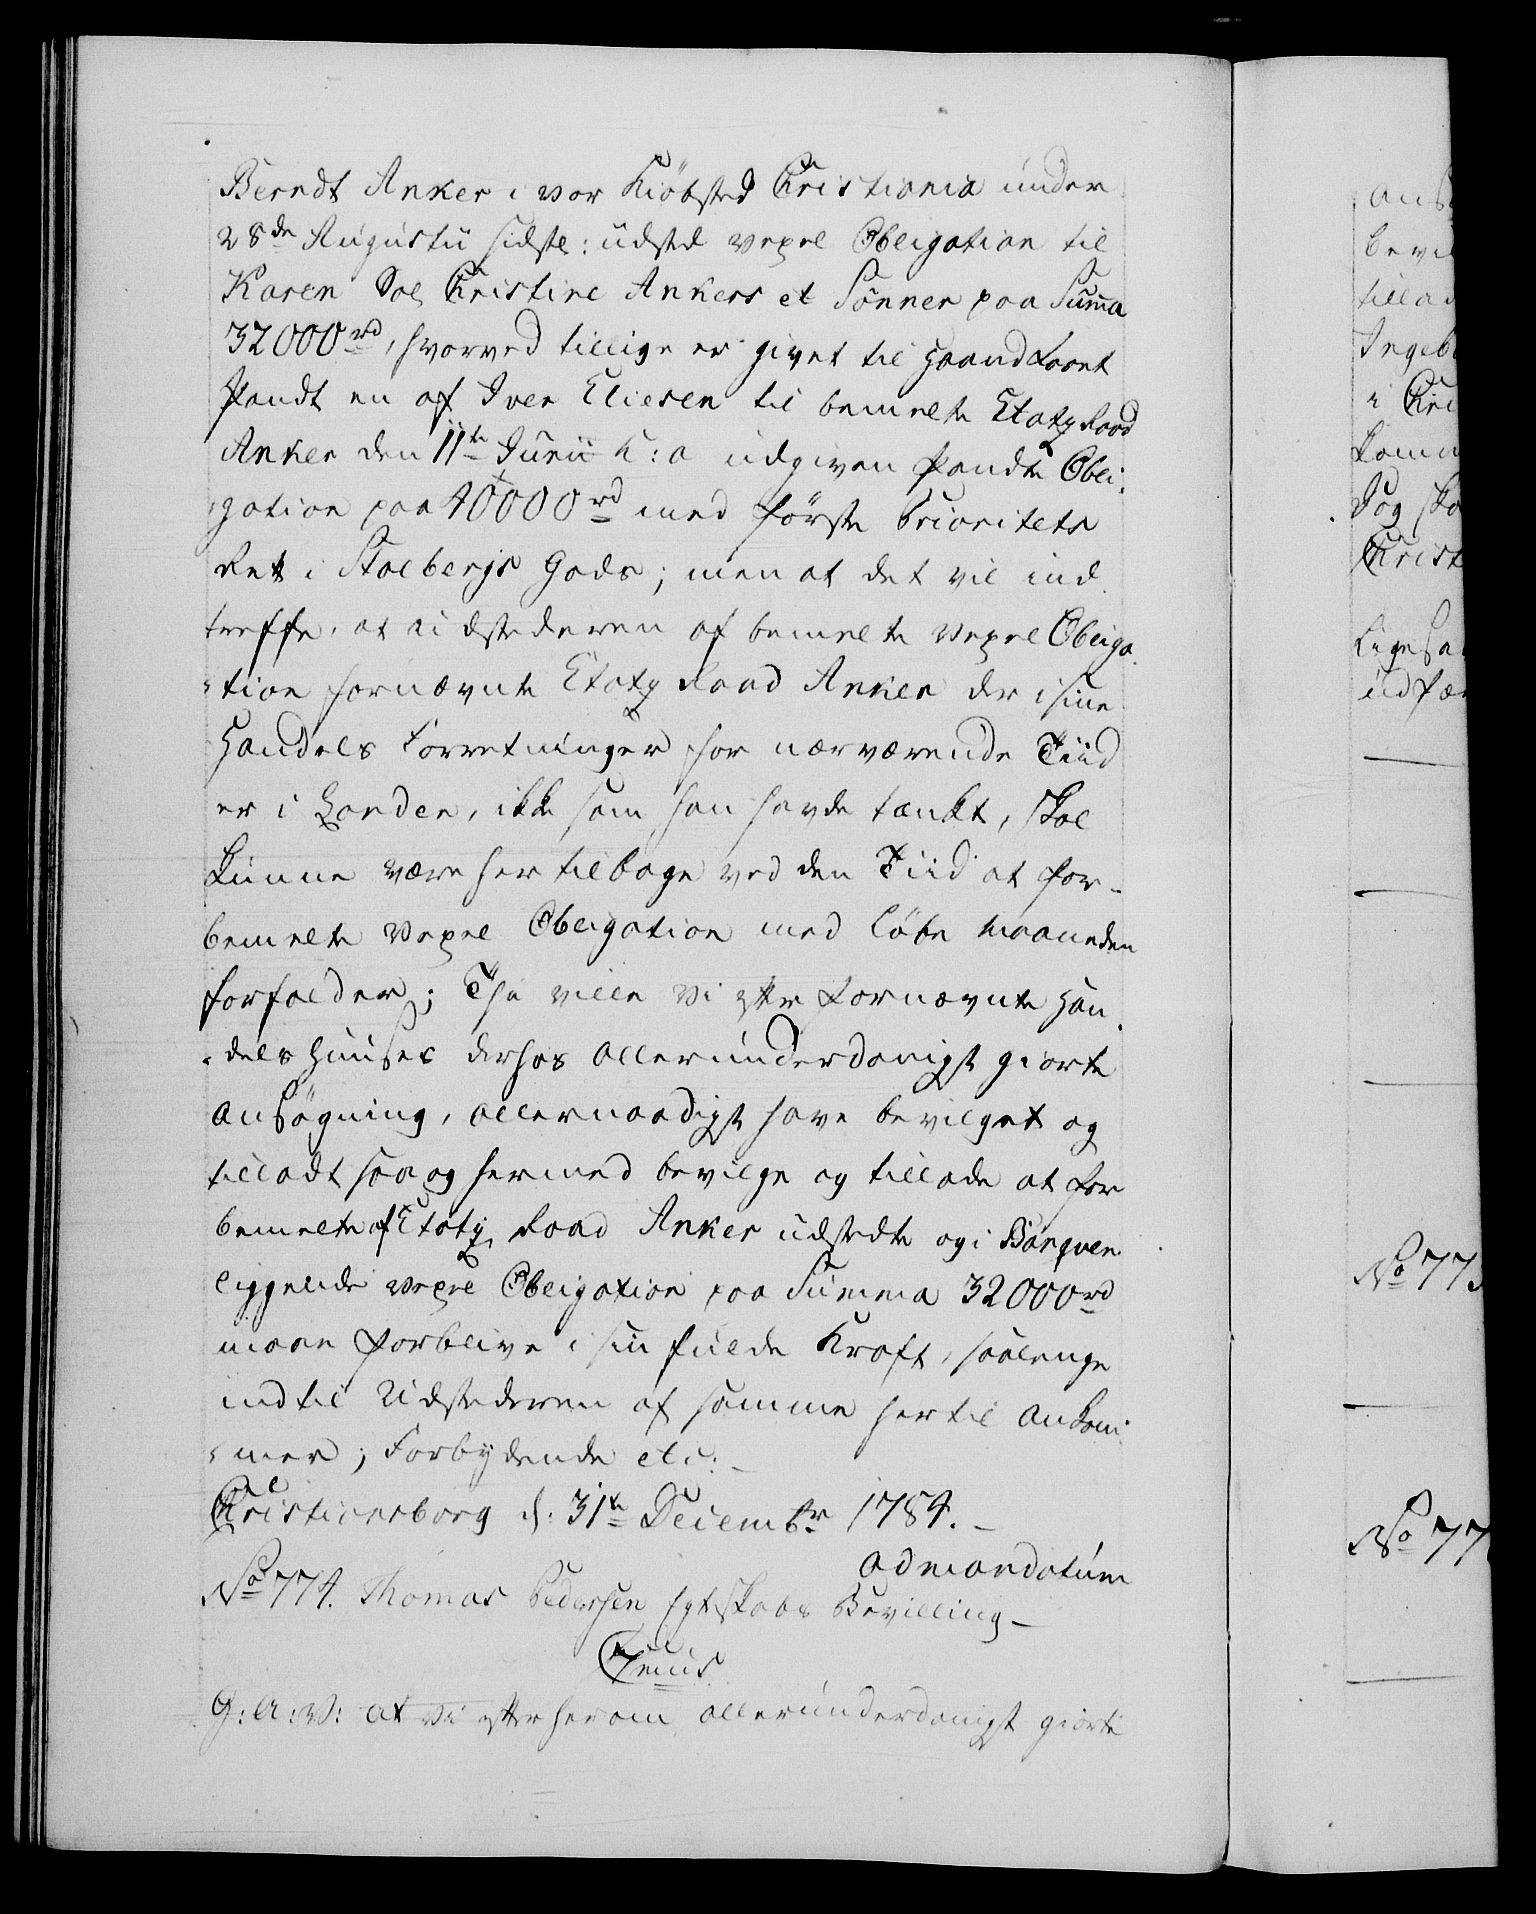 Berndt Anker i vor Kiöbsted Christiania under
28de Augustii sidstl: udsted vexel Obligation til
Karen Sal Christine Ankers et Sönner paa Suma
32000rd, hvorved tillige er givet til haandfaaet
Pandt en af Iver Eliesen til bemelte Etatz Raad
Anker den 11te Junii h: a udgiven Pandte Obli-
gation paa 40000rd med förste Prioritets
Ret i Stoelbergs Gods; men at det vil ind
treffe, at Udstederen af bemelte vexel Obliga
-tion fornævnte Etatz Raad Anker der i sine
Handels Forretninger for nærværende Tiid
er i London, ikke som han havde tænkt, skal
kunne være her tilbage ved den Tiid at for-
bemelte vexel Obligation med löbe maaneden
forfalder; Thi ville Vi efter fornævnte Han
-dels Huuses derhos allerunderdanigst giorte
Ansögning, allernaadigst have bevilget og
tilladt saa og hermed bevilge og tillade at for
bemelte af Etatz Raad Anker udstedte og i Banqven
liggende vexel Obligation paa Summa 32000rd
maae forblive i sin fulde Kraft, saalenge
indtil Udstederen af samme hertil ankom
-mer; Forbydende etc: -
Christiansborg d: 31te Decembr 1784. -
ad mandatum
No 774. Thomas Pedersen Egteskabs Bevilling -
G: A: V: at vi efter herom allerunderdanigst giorte
No 77
No 77